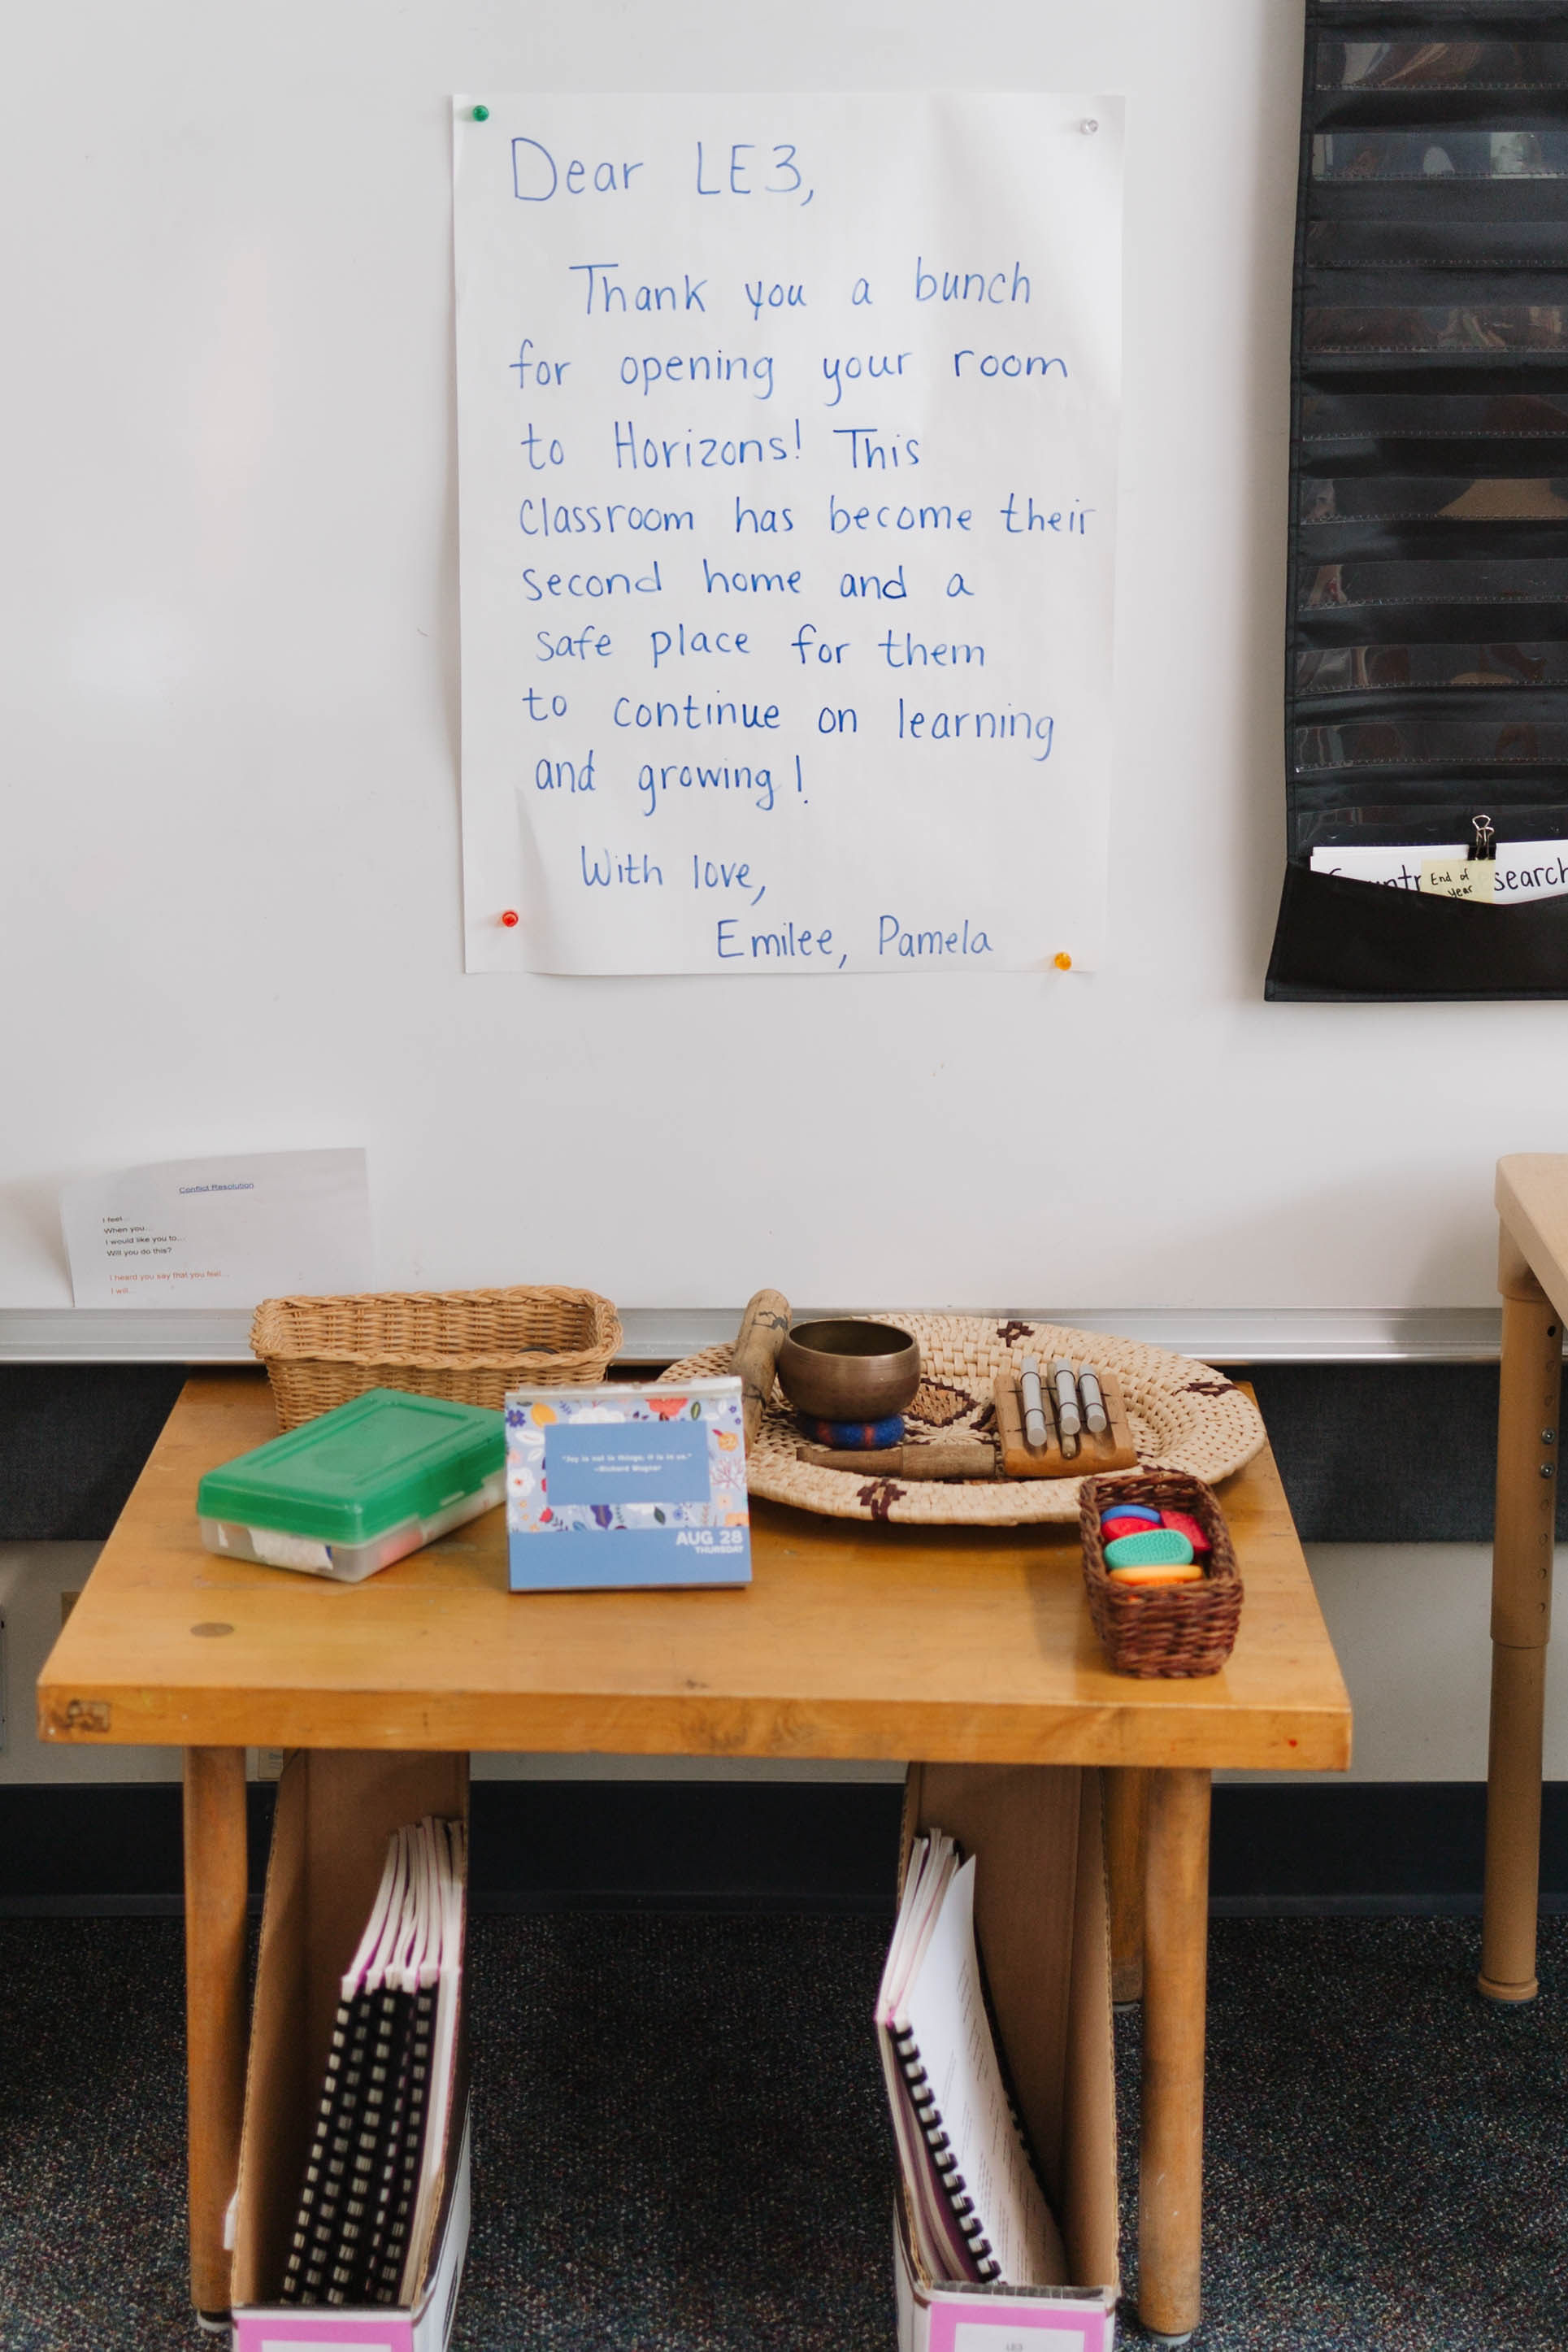 Dear LE3,
Thank you a bunch
for opening your room
to Horizons! This
Classroom has become their
second home and a
safe place for them
to continue on learning
and growing!
With love,
Emilee, Pamela
End of
Year
search
Conflict Resolution
I feel...
When you...
I would like you to...
Will you do this?
I heard you say that you feel...
I will...
"Joy is not in things; it is in us."
~Richard Wagner
AUG 28
THURSDAY
LE3